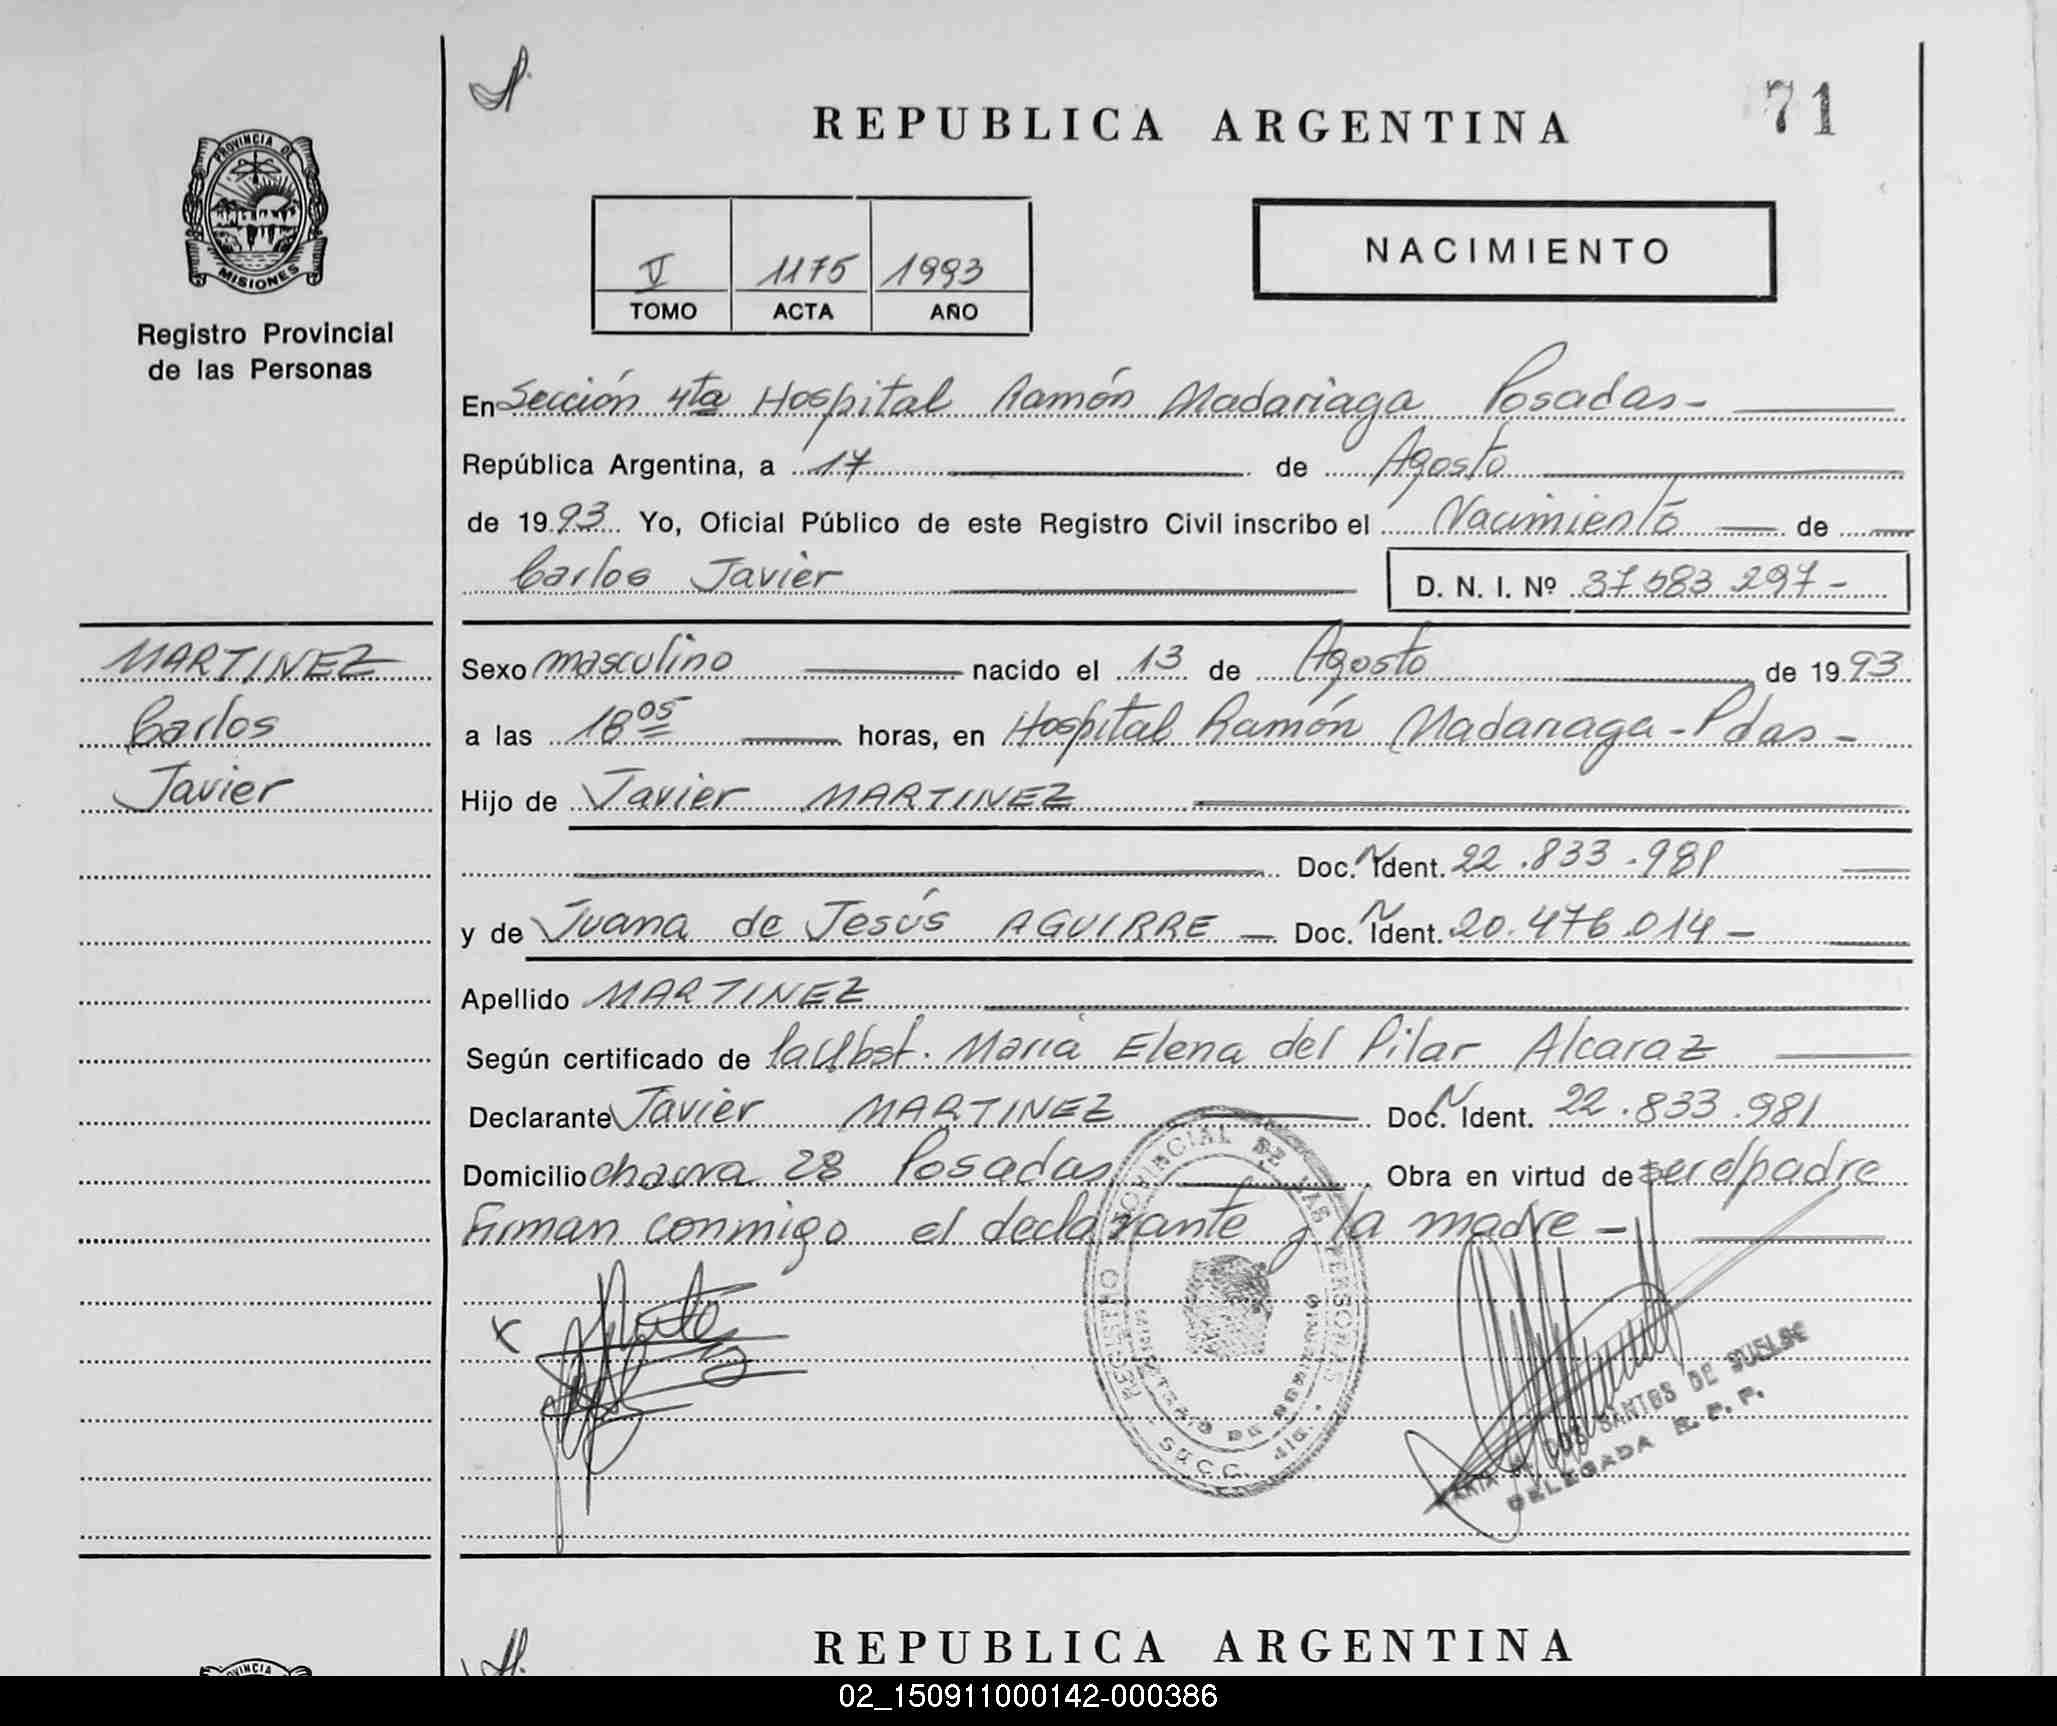 REPUBLICA ARGENTINA
71
PROVINCIA DE
MISIONES
Registro Provincial
de las Personas
V 1175 1993
TOMO ACTA AÑO
NACIMIENTO
En Sección 4ta Hospital Ramón Madariaga Posadas-
República Argentina, a 17 de Agosto
de 1993 Yo, Oficial Público de este Registro Civil inscribo el Nacimiento de
Carlos Javier D. N. I. Nº 37583297-
MARTINEZ
Carlos
Javier
Sexo masculino nacido el 13 de Agosto de 1993
a las 18 05 horas, en Hospital Ramón Madariaga-Pdas-
Hijo de Javier MARTINEZ
Doc. N Ident. 22.833.981
y de Juana de Jesús AGUIRRE - Doc. N Ident. 20.476.014-
Apellido MARTINEZ
Según certificado de la Obst. María Elena del Pilar Alcaraz
Declarante Javier MARTINEZ Doc. N Ident. 22.833.981
Domicilio chacra 28 Posadas Obra en virtud de ser el padre
Firman conmigo el declarante y la madre-
REGISTRO PROVINCIAL DE LAS PERSONAS
MINISTERIO DE GOBIERNO
SUCC. 4ta.
DOS SANTOS DE
DELEGADA R. P. P.
REPUBLICA ARGENTINA
VINCIA
02_150911000142-000386